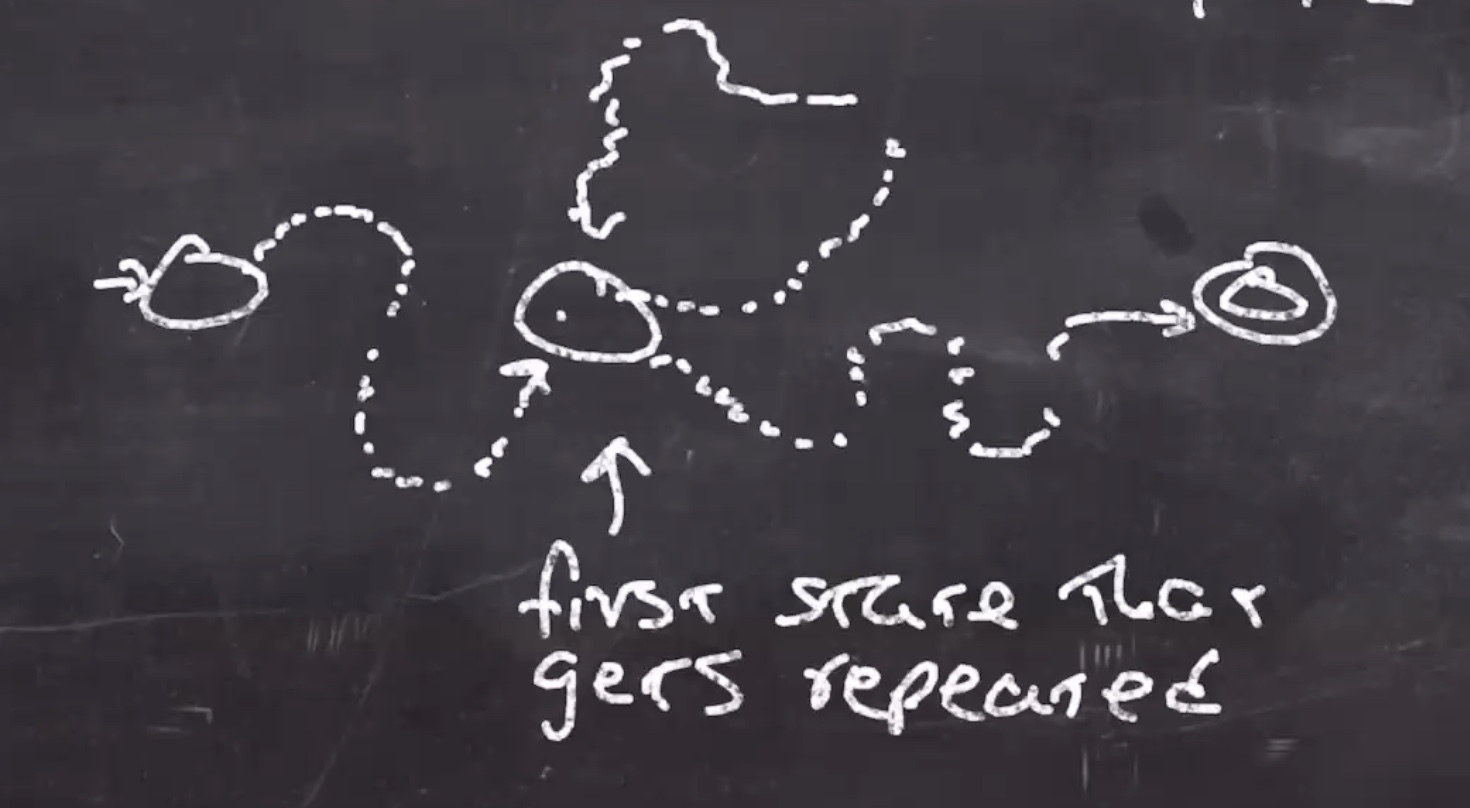 first state that
gets repeated